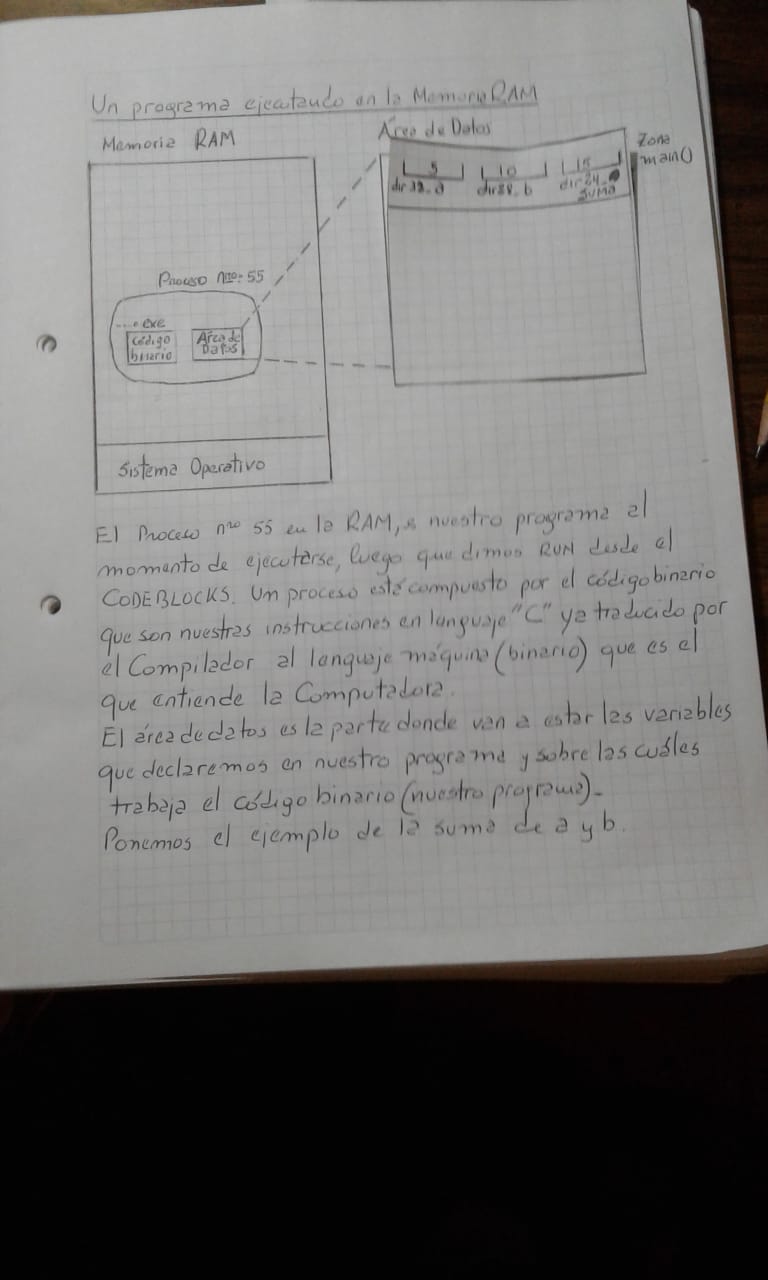 Un programa ejecutando en la Memoria RAM
Memoria RAM
Área de Datos
Zona
main()
5
10
15
dir 28_b
dir24_
suma
Proceso nro: 55
.....exe
Código
binario
Área de
Datos
Sistema Operativo
El Proceso nro 55 en la RAM, nuestro programa al
momento de ejecutarse, luego que dimos RUN desde el
CODEBLOCKS. Un proceso está compuesto por el código binario
que son nuestras instrucciones en lenguaje "C" ya traducido por
el Compilador al lenguaje máquina (binario) que es el
que entiende la Computadora.
El área de datos es la parte donde van a estar las variables
que declaremos en nuestro programa y sobre las cuáles
trabaja el código binario (nuestro programa)-
Ponemos el ejemplo de la suma de a y b.